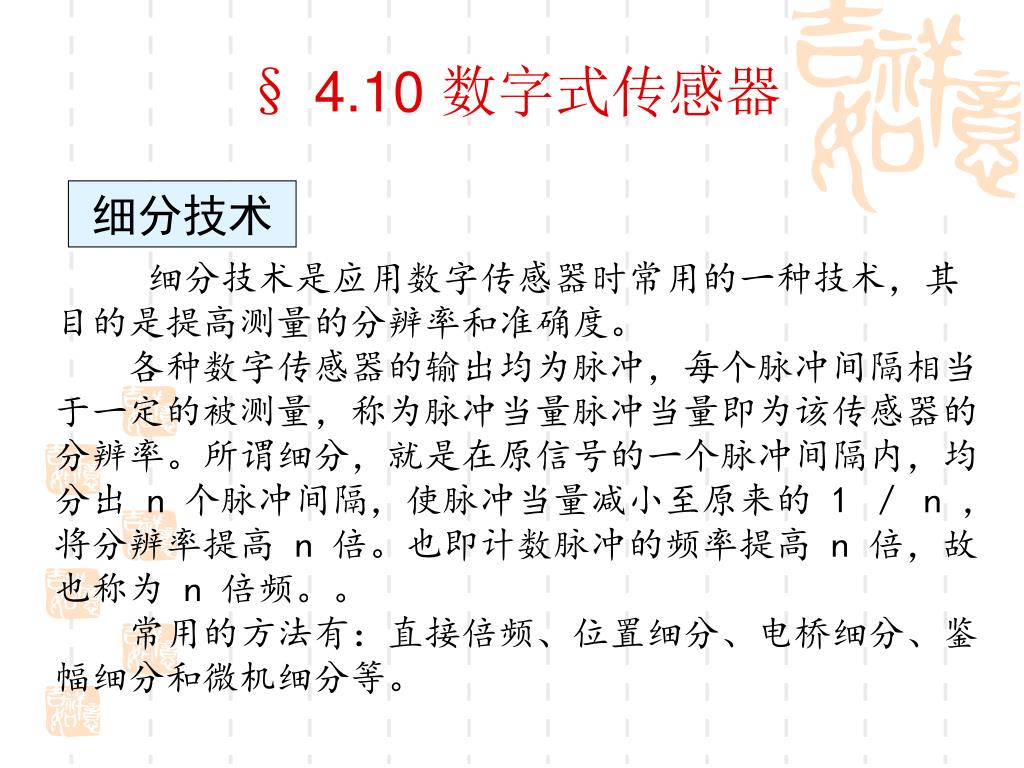 § 4.10 数字式传感器
吉祥
如意
细分技术
细分技术是应用数字传感器时常用的一种技术，其
目的是提高测量的分辨率和准确度。
各种数字传感器的输出均为脉冲，每个脉冲间隔相当
于一定的被测量，称为脉冲当量脉冲当量即为该传感器的
分辨率。所谓细分，就是在原信号的一个脉冲间隔内，均
分出 n 个脉冲间隔，使脉冲当量减小至原来的 1 / n ，
将分辨率提高 n 倍。也即计数脉冲的频率提高 n 倍，故
也称为 n 倍频。。
常用的方法有：直接倍频、位置细分、电桥细分、鉴
幅细分和微机细分等。